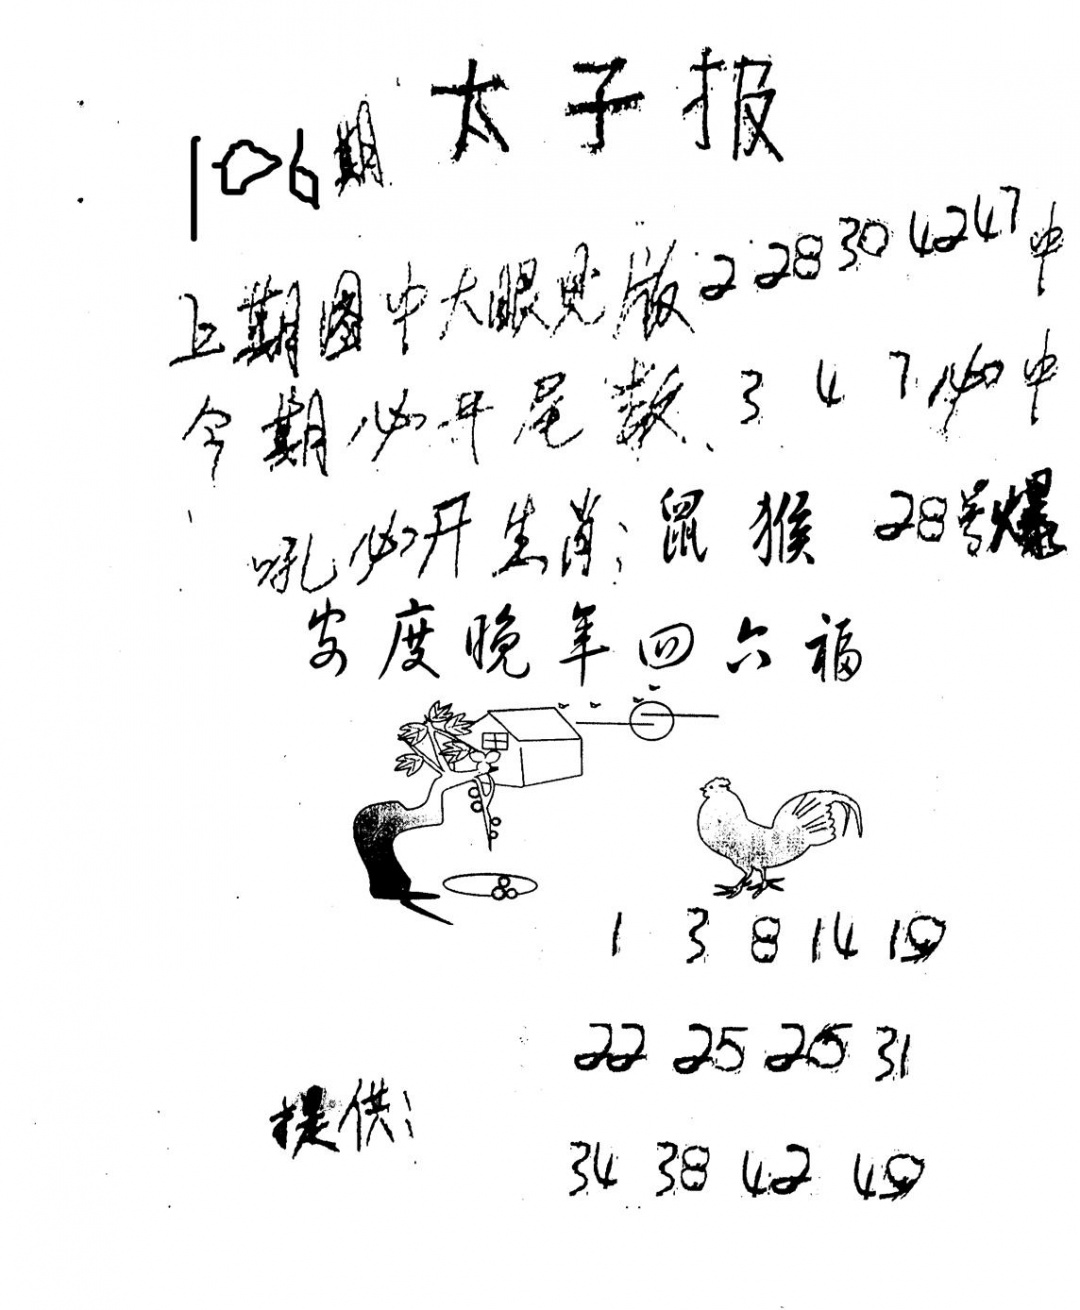 太子报
106期
上期图中大眼见版2 28 30 42 47中
今期必开尾数.3 4 7必中
吼必开生肖:鼠猴 28号爆
安度晚年四六福
1 3 8 14 19
22 25 31
提供:
34 38 42 49